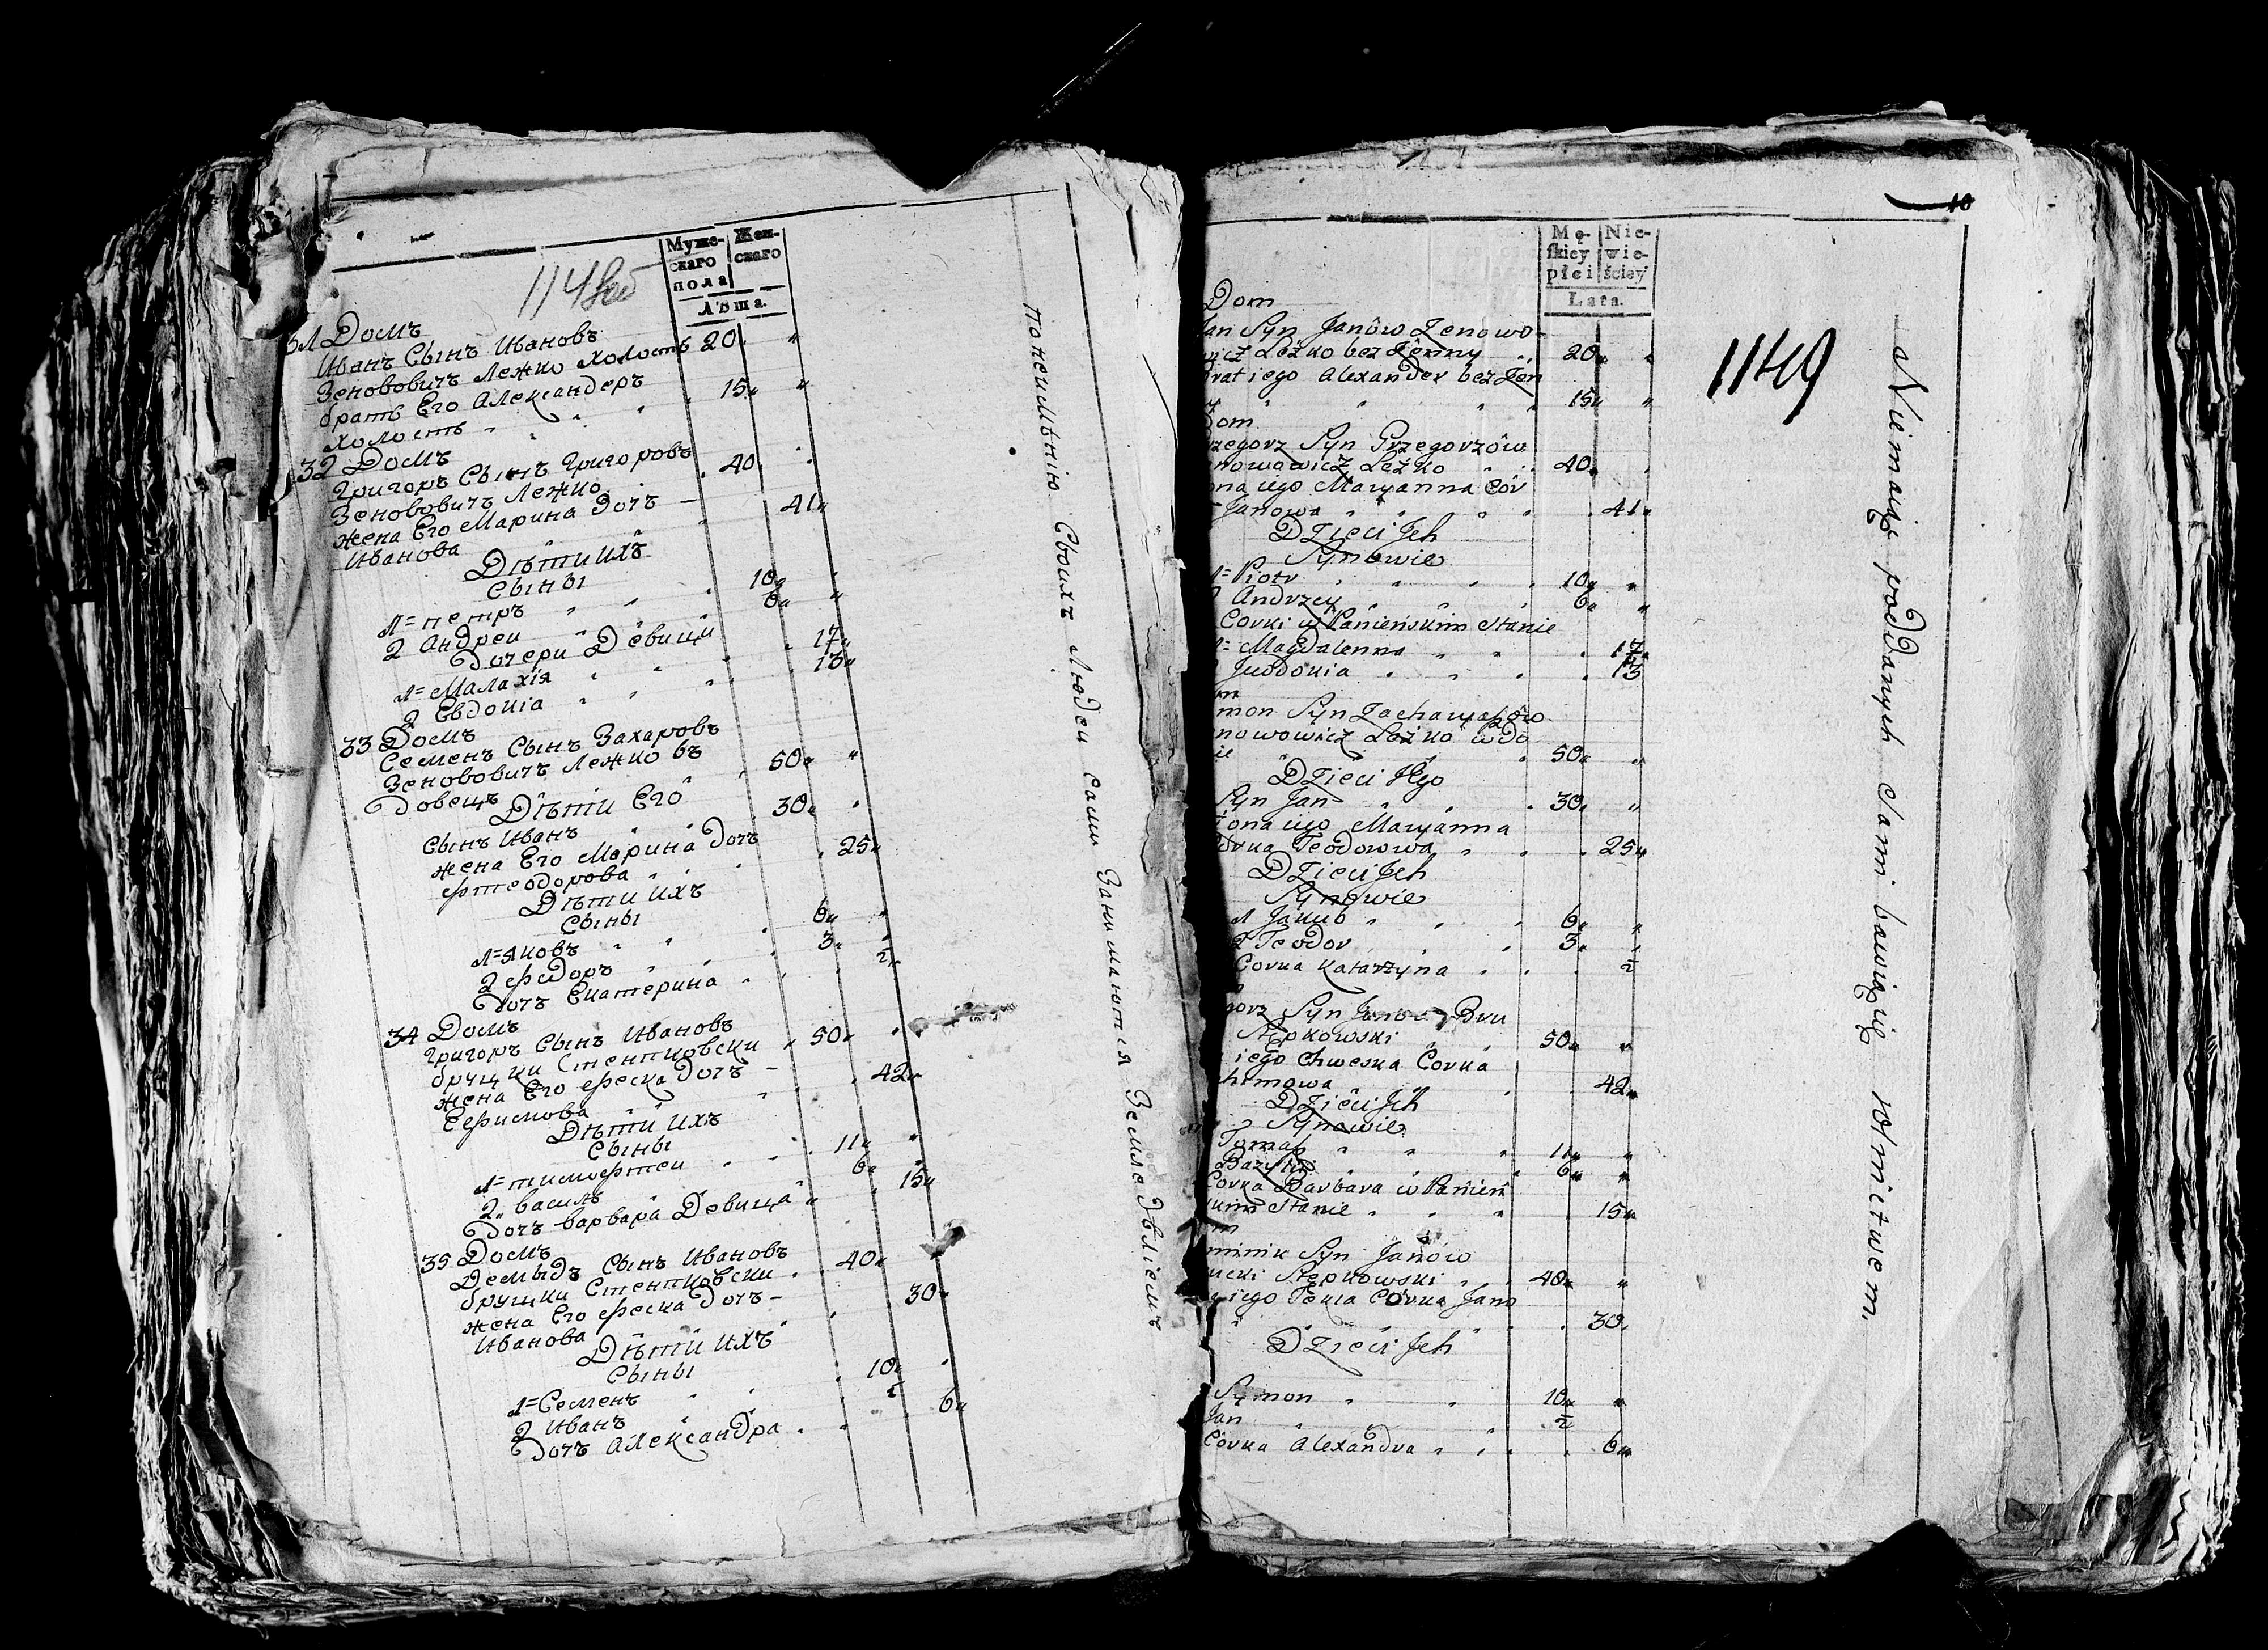 1148об
Муже-
скаго
пола
Жен-
скаго
Лѣта.
31 Домъ
Иванъ Сынъ Ивановъ
Зеновичъ Лежко Холостъ 20 "
братъ Его Александеръ
Холостъ " " " 15 "
32 Домъ
Григоръ Сынъ Григоровъ
Зеновичъ Лежко 40 "
жена Его Марина Дочъ —
Иванова " 41 "
Дѣти ихъ
Сыны
1= петръ " " 10 "
2 Андреи " " 6 "
Дочери Девицы
1= Малахія " " 17 "
2 Евдокіа " " 13 "
33 Домъ
Семенъ Сынъ Захаровъ
Зеновичъ Лежко въ
Довецъ 50 "
Дѣти Его
Сынъ Иванъ 30 "
жена Его Марина Дочъ
Фтеодорова " " 25 "
Дѣти ихъ
Сыны
1= яковъ " " 6 "
2 Фндоръ " " 3 "
Дочъ Екатерина " 2
34 Домъ
Григоръ Сынъ Ивановъ
бруцки Стентковски 50 "
жена Его Феска Дочъ —
Ефимова " 42 "
Дѣти ихъ
Сыны
1= тимофтеи " 11 "
2 василъ 6 "
Дочъ варвара Девица 15 "
35 Домъ
Демыдъ Сынъ Ивановъ
бруцки Стентковски 40 "
жена Его Феска Дочъ —
Иванова 30 "
Дѣти ихъ
Сыны
1= Семенъ " " 10 "
2 Иванъ 2
Дочъ Александра 6 "
понеимѣнію Своихъ Людеи сами Занимаются Земледѣліемъ
10
1149
Mę-
skiey
płci
Nie-
wie-
ściey
Lata.
Dom
Jan Syn Janów Zenowo-
wicz Leżko bez Żenny 20 "
Brat iego Alexander bez Żen
y " " 15 "
Dom
Grzegorz Syn Grzegorzów
Zenowowicz Leżko 40
Żona iego Maryanna Cór
Janowa " " 41 "
Dzieci Jch
Synowie
1= Piotr " " 10 "
2 Andrzey " " 6 "
Corki w Panieńskim Stanie
1= Magdalenna " " 17 "
2 Jwdokia " " 13
Symon Syn Zacharyaszów
Zenowowicz Leżko wdo
50 "
Dzieci Jego
Syn Jan 30 "
Żona iego Maryanna
Córka Teodorowa " " 25 "
Dzieci Jch
Synowie
1 Jakub " " 6 "
2 Teodor " " 3 "
Corka Katarzyna 2
Syn Janow Bru
Stępkowski 50 "
iego Chweska Corka
42 "
Dzieci Jch
Synowie
Tomasz " " 11 "
Bazyli 6 "
Corka Barbara w Panień
skim Stanie " " 15 "
Syn Janów
Stępkowski 40 "
iego Tekla Córka Jano
30
Dzieci Jch
Symon " " 10 "
Jan 2
Córka Alexandra " " 6 "
Niemaiąc poddanych Sami bawią się rolnictwem,